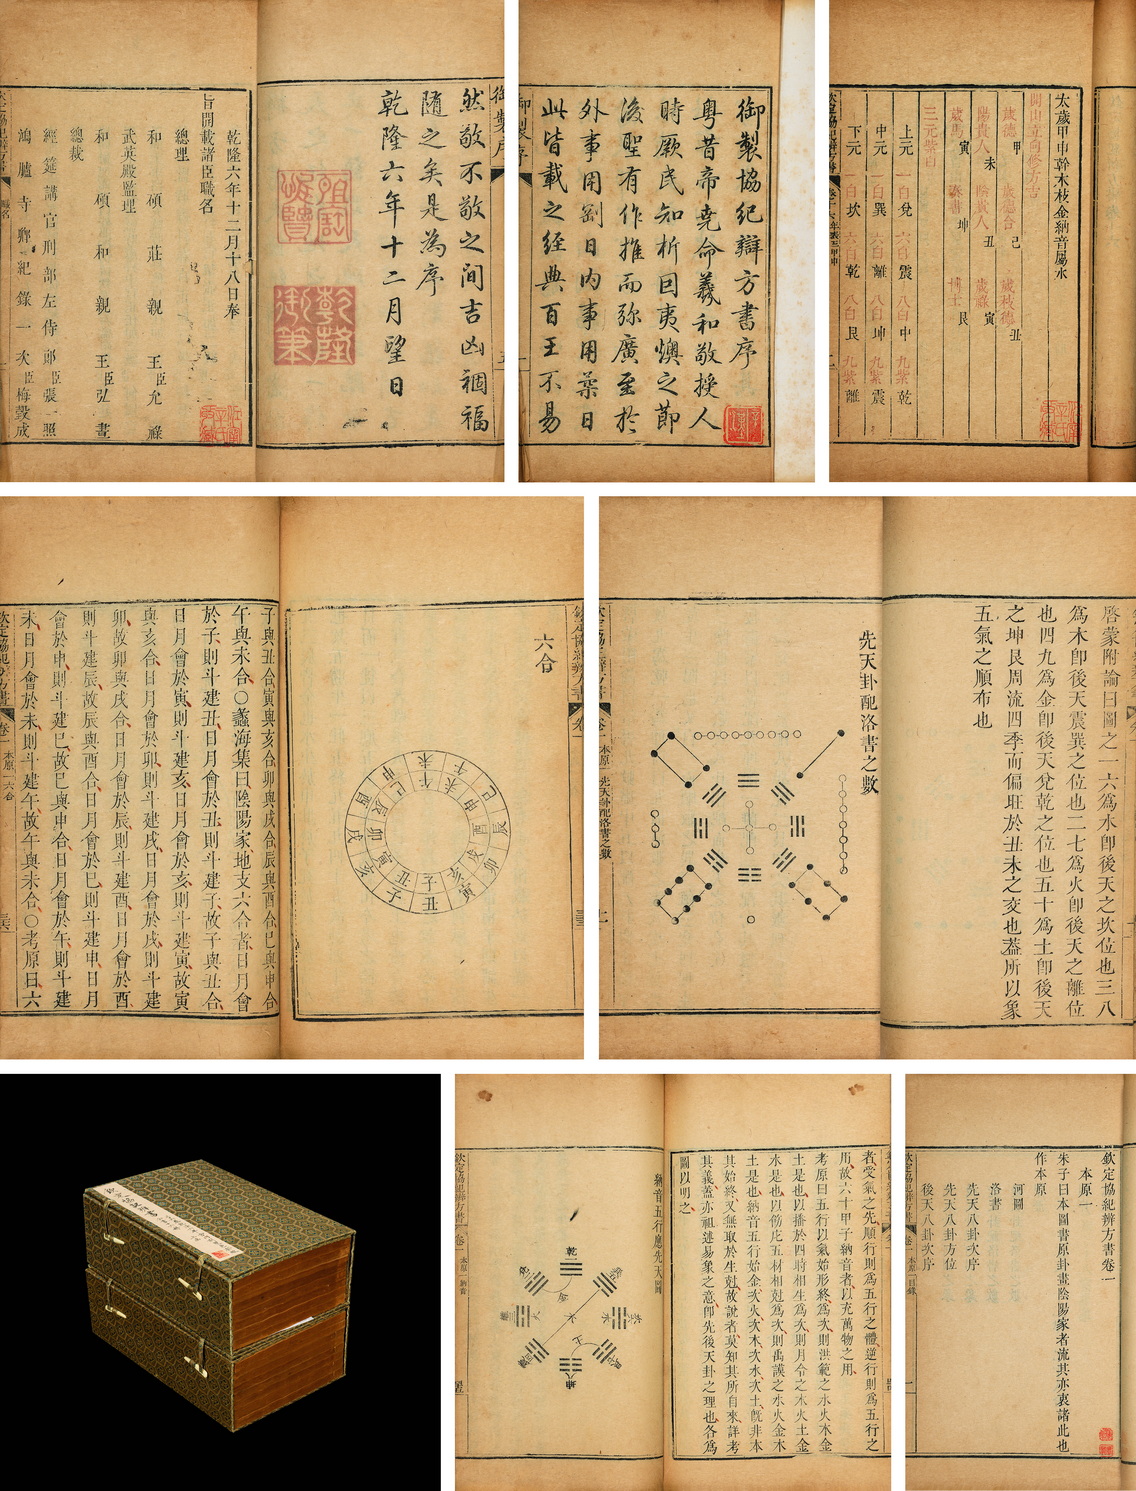 然敬不敬之間吉凶禍福
隨之矣是為序
乾隆六年十二月望日
乾隆御筆
乾隆六年十二月十八日奉
旨開載諸臣職名
總理
和碩莊親王臣允祿
武英殿監理
和碩和親王臣弘晝
總裁
經筵講官刑部左侍郎臣張照
鴻臚寺卿紀錄一次臣梅瑴成
御製協紀辨方書序
粵昔帝堯命羲和敬授人
時厥民知析因夷燠之節
後聖有作推而弥廣至於
外事用剛日內事用柔日
此皆載之經典百王不易
太歲甲申幹木枝金納音屬水
開山立向修方吉
歲德甲 歲德合己 歲枝德丑
陽貴人未 陰貴人丑 歲祿寅
歲馬寅 奏書坤 博士艮
三元紫白
上元 一白兌 六白震 八白中 九紫乾
中元 一白巽 六白離 八白坤 九紫震
下元 一白坎 六白乾 八白艮 九紫離
六合
子與丑合寅與亥合卯與戌合辰與酉合巳與申合
午與未合○蠡海集曰陰陽家地支六合者日月會
於子則斗建丑日月會於丑則斗建子故子與丑合
日月會於寅則斗建亥日月會於亥則斗建寅故寅
與亥合日月會於卯則斗建戌日月會於戌則斗建
卯故卯與戌合日月會於辰則斗建酉日月會於酉
則斗建辰故辰與酉合日月會於巳則斗建申日月
會於申則斗建巳故巳與申合日月會於午則斗建
未日月會於未則斗建午故午與未合○考原曰六
啓蒙附論曰圖之一六為水卽後天之坎位也三八
為木卽後天震巽之位也二七為火卽後天之離位
也四九為金卽後天兌乾之位也五十為土卽後天
之坤艮周流四季而偏旺於丑未之交也蓋所以象
五氣之順布也
先天卦配洛書之數
者受氣之先順行則為五行之體逆行則為五行之
用故六十甲子納音者以充萬物之用
考原曰五行以氣始形終為次則洪範之水火木金
土是也以播於四時相生為次則月令之木火土金
水是也以飭庀五材相尅為次則禹謨之水火金木
土是也納音五行始金次火次木次水次土旣非本
其始終又無取於生尅故說者莫知其所自來詳考
其義蓋亦祖述易象之意卽先後天卦之理也各為
圖以明之
納音五行應先天圖
欽定協紀辨方書卷一
本原一
朱子曰本圖書原卦畫陰陽家者流其亦衷諸此也
作本原
河圖
洛書
先天八卦次序
先天八卦方位
後天八卦次序